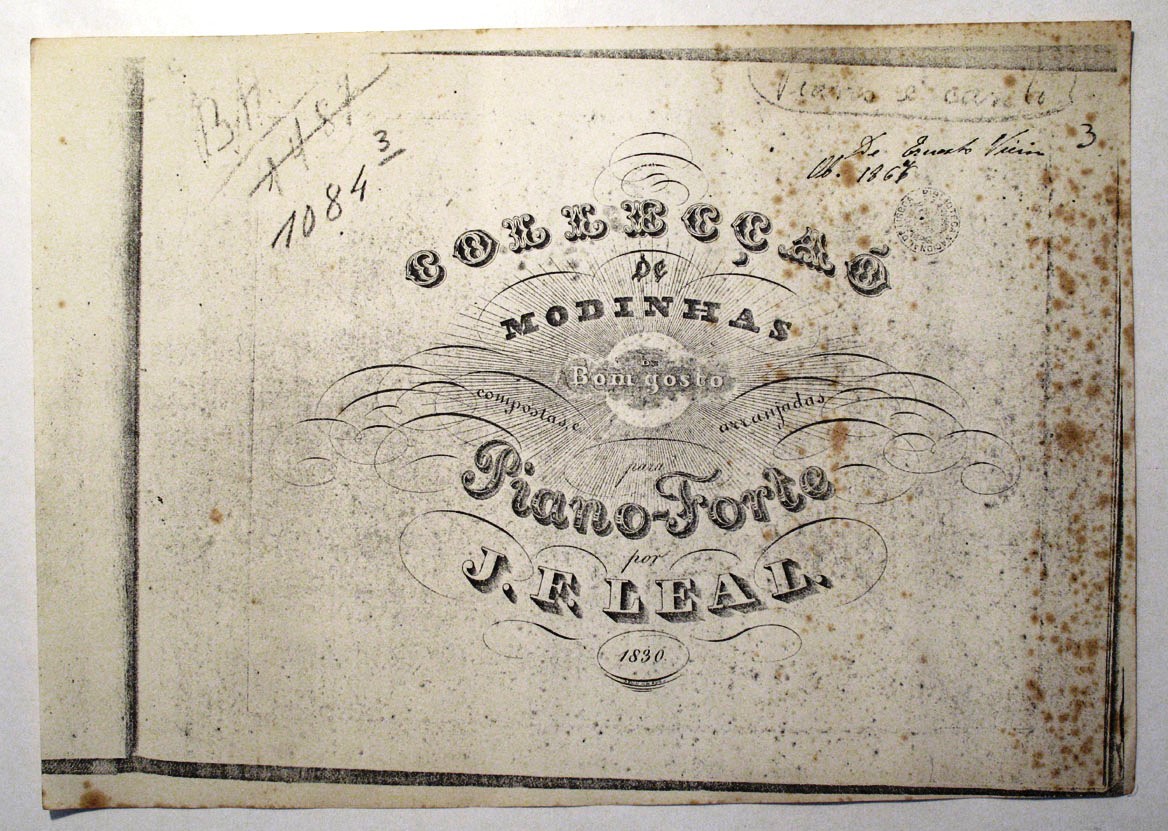 B.A.
1084 3
Piano e canto
De Ernesto Vieira 3
COLLECÇAÕ
de
MODINHAS
DE
Bom gosto
compostas, e arranjadas
para
Piano-Forte
por
J. F. LEAL.
1830